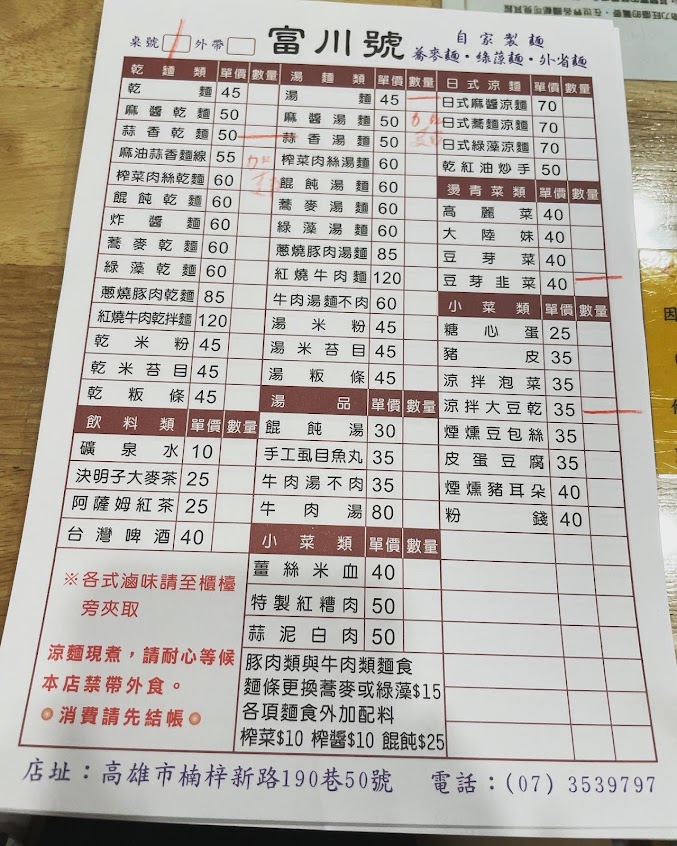 桌號 外帶 富川號 自家製麵
蕎麥麵・綠藻麵・外省麵
乾麵類 單價 數量
乾麵 45
麻醬乾麵 50
蒜香乾麵 50
麻油蒜香麵線 55
榨菜肉絲乾麵 60
餛飩乾麵 60
炸醬麵 60
蕎麥乾麵 60
綠藻乾麵 60
蔥燒豚肉乾麵 85
紅燒牛肉乾拌麵 120
乾米粉 45
乾米苔目 45
乾粄條 45
飲料類 單價 數量
礦泉水 10
決明子大麥茶 25
阿薩姆紅茶 25
台灣啤酒 40
※各式滷味請至櫃檯
旁夾取
涼麵現煮，請耐心等候
本店禁帶外食。
消費請先結帳
湯麵類 單價 數量
湯麵 45
麻醬湯麵 50
蒜香湯麵 50
榨菜肉絲湯麵 60
餛飩湯麵 60
蕎麥湯麵 60
綠藻湯麵 60
蔥燒豚肉湯麵 85
紅燒牛肉麵 120
牛肉湯麵不肉 60
湯米粉 45
湯米苔目 45
湯粄條 45
湯品 單價 數量
餛飩湯 30
手工虱目魚丸 35
牛肉湯不肉 35
牛肉湯 80
小菜類 單價 數量
薑絲米血 40
特製紅糟肉 50
蒜泥白肉 50
豚肉類與牛肉類麵食
麵條更換蕎麥或綠藻$15
各項麵食外加配料
榨菜$10 榨醬$10 餛飩$25
日式涼麵 單價 數量
日式麻醬涼麵 70
日式蕎麵涼麵 70
日式綠藻涼麵 70
乾紅油炒手 50
燙青菜類 單價 數量
高麗菜 40
大陸妹 40
豆芽菜 40
豆芽韭菜 40
小菜類 單價 數量
糖心蛋 25
豬皮 35
涼拌泡菜 35
涼拌大豆乾 35
煙燻豆包絲 35
皮蛋豆腐 35
煙燻豬耳朵 40
粉錢 40
店址：高雄市楠梓新路190巷50號 電話：(07) 3539797